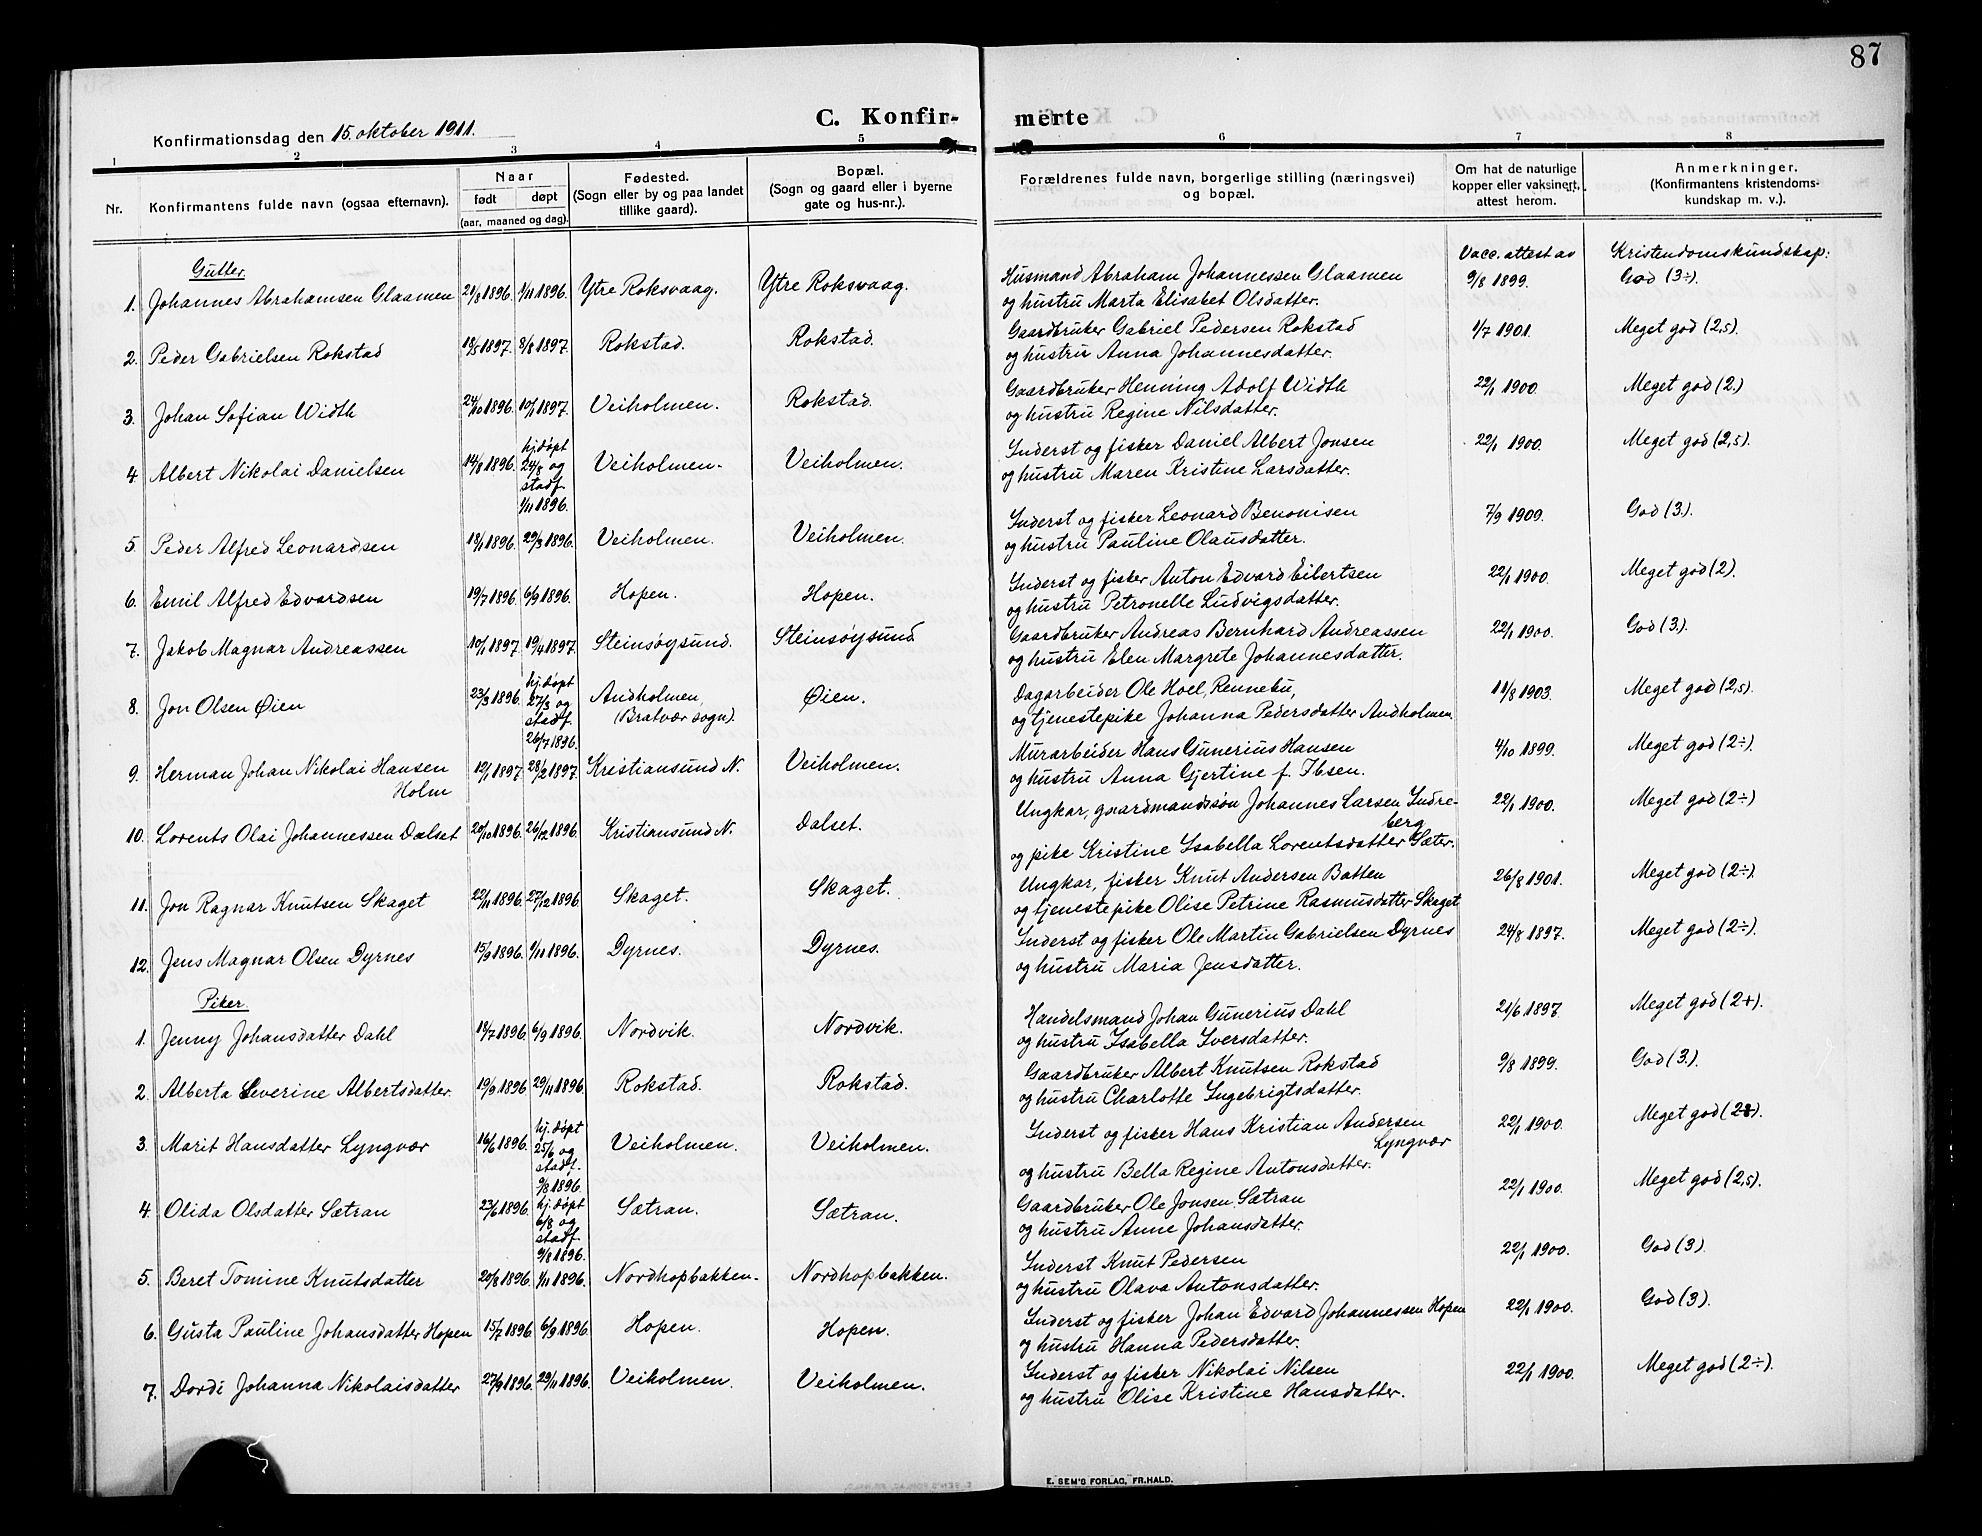 87
C. Konfirmerte
Konfirmationsdag den 15. oktober 1911.
1 2 3 4 5 6 7 8
Nr. Konfirmantens fulde navn (ogsaa efternavn). Naar født døpt (aar, maaned og dag). Fødested. (Sogn eller by og paa landet tillike gaard). Bopæl. (Sogn og gaard eller i byerne gate og hus-nr.). Forældrenes fulde navn, borgerlige stilling (næringsvei) og bopæl. Om hat de naturlige kopper eller vaksinert, attest herom. Anmerkninger. (Konfirmantens kristendomskundskap m. v.).
Gutter.
Vacc. attest av Kristendomskundskap:
1. Johannes Abrahamsen Glaamen 21/8 1896. 1/11 1896. Ytre Roksvaag. Ytre Roksvaag. Husmand Abraham Johannessen Glaamen 9/8 1899. God (3÷).
og hustru Marta Elisabet Olsdatter.
2. Peder Gabrielsen Rokstad 18/5 1897. 8/8 1897. Rokstad. Rokstad. Gaardbruker Gabriel Pedersen Rokstad 1/7 1901. Meget god (2,5).
og hustru Anna Johannesdatter.
3. Johan Sofian Width 24/10 1896. 10/1 1897. Veiholmen. Rokstad. Gaardbruker Henning Adolf Width 22/1 1900. Meget god (2.)
og hustru Regine Nilsdatter.
4. Albert Nikolai Danielsen 14/8 1896. hj. døpt 24/8 og stadf. 1/11 1896. Veiholmen. Veiholmen. Inderst og fisker Daniel Albert Jonsen 22/1 1900. Meget god (2,5).
og hustru Maren Kristine Larsdatter.
5. Peder Alfred Leonardsen 18/1 1896. 29/3 1896. Veiholmen. Veiholmen. Inderst og fisker Leonard Benonisen 7/9 1900. God (3.).
og hustru Pauline Olausdatter.
6. Emil Alfred Edvardsen 19/7 1896. 6/9 1896. Hopen. Hopen. Inderst og fisker Anton Edvard Eilertsen 22/1 1900. Meget god (2).
og hustru Petronelle Ludvigsdatter.
7. Jakob Magnar Andreassen 10/1 1897. 19/4 1897. Steinsøysund. Steinsøysund. Gaardbruker Andreas Bernhard Andreassen 22/1 1900. God (3.).
og hustru Elen Margrete Johannesdatter.
8. Jon Olsen Øien 23/3 1896. hj. døpt 27/3 og stadf. 26/7 1896. Andholmen, (Bratvær sogn). Øien. Dagarbeider Ole Hoel, Rennebu, 11/8 1903. Meget god (2,5).
og tjenestepike Johanna Pedersdatter Andholmen.
9. Herman Johan Nikolai Hansen Holm 12/1 1897. 28/2 1897. Kristiansund N. Veiholmen. Murarbeider Hans Gunerius Hansen 4/10 1899. Meget god (2÷).
og hustru Anna Gjertine f. Ibsen.
10. Lorents Olai Johannessen Dalset 20/10 1896. 26/12 1896. Kristiansund N. Dalset. Ungkar, gaardmandssøn Johannes Larsen Indreberg 22/1 1900. Meget god (2÷)
og pike Kristine Isabella Lorentsdatter Sæter.
11. Jon Ragnar Knutsen Skaget 22/11 1896. 27/12 1896 Skaget. Skaget. Ungkar, fisker Knut Andersen Batten 26/8 1901. Meget god (2÷).
og tjenestepike Olise Petrine Rasmusdatter Skaget
12. Jens Magnar Olsen Dyrnes 15/9 1896. 1/11 1896. Dyrnes. Dyrnes. Inderst og fisker Ole Martin Gabrielsen Dyrnes 24/8 1897. Meget god (2÷).
og hustru Maria Jensdatter.
Piker.
1. Jenny Johansdatter Dahl 18/7 1896. 6/9 1896. Nordvik. Nordvik. Handelsmand Johan Gunerius Dahl 21/6 1897. Meget god (2+).
og hustru Isabella Iversdatter.
2. Alberta Severine Albertsdatter. 19/9 1896 29/11 1896. Rokstad. Rokstad. Gaardbruker Albert Knutsen Rokstad 9/8 1899. God (3.).
og hustru Charlotte Ingebrigtsdatter.
3. Marit Hansdatter Lyngvær 16/6 1896. hj. døpt 25/6 og stadf. 9/8 1896. Veiholmen. Veiholmen. Inderst og fisker Hans Kristian Andersen Lyngvær 22/1 1900. Meget god
og hustru Bella Regine Antonsdatter.
4. Olida Olsdatter Sætran 23/6 1896. hj. døpt 6/8 og stadf. 9/8 1896. Sætran. Sætran. Gaardbruker Ole Jonsen Sætran 22/1 1900. Meget god (2,5).
og hustru Anne Johansdatter.
5. Beret Tomine Knutsdatter 20/8 1896. 1/11 1896. Nordhopbakken. Nordhopbakken. Inderst Knut Pedersen 22/1 1900. God (3).
og hustru Olava Antonsdatter.
6. Gusta Pauline Johansdatter Hopen 15/7 1896. 6/9 1896. Hopen. Hopen. Inderst og fisker Johan Edvard Johannessen Hopen 22/1 1900. God (3).
og hustru Hanna Pedersdatter.
7. Dordi Johanna Nikolaisdatter 27/9 1896. 29/11 1896. Veiholmen. Veiholmen. Inderst og fisker Nikolai Nilsen 22/1 1900. Meget god (2÷).
og hustru Olise Kristine Hansdatter.
E. SEM'S FORLAG, FR.HALD.